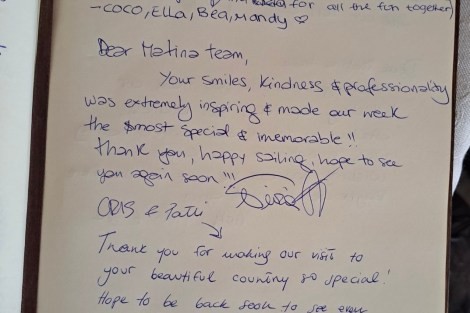 for all the fun together)
- COCO, Ella, Bea, Mandy ♡
Dear Matina team,
Your smiles, kindness & professionality
was extremely inspiring & made our week
the most special & memorable !!
thank you, happy sailing, hope to see
you again soon !!!
CRIS &
Thank you for making our visit to
your beautiful country so special!
Hope to be back soon to see even